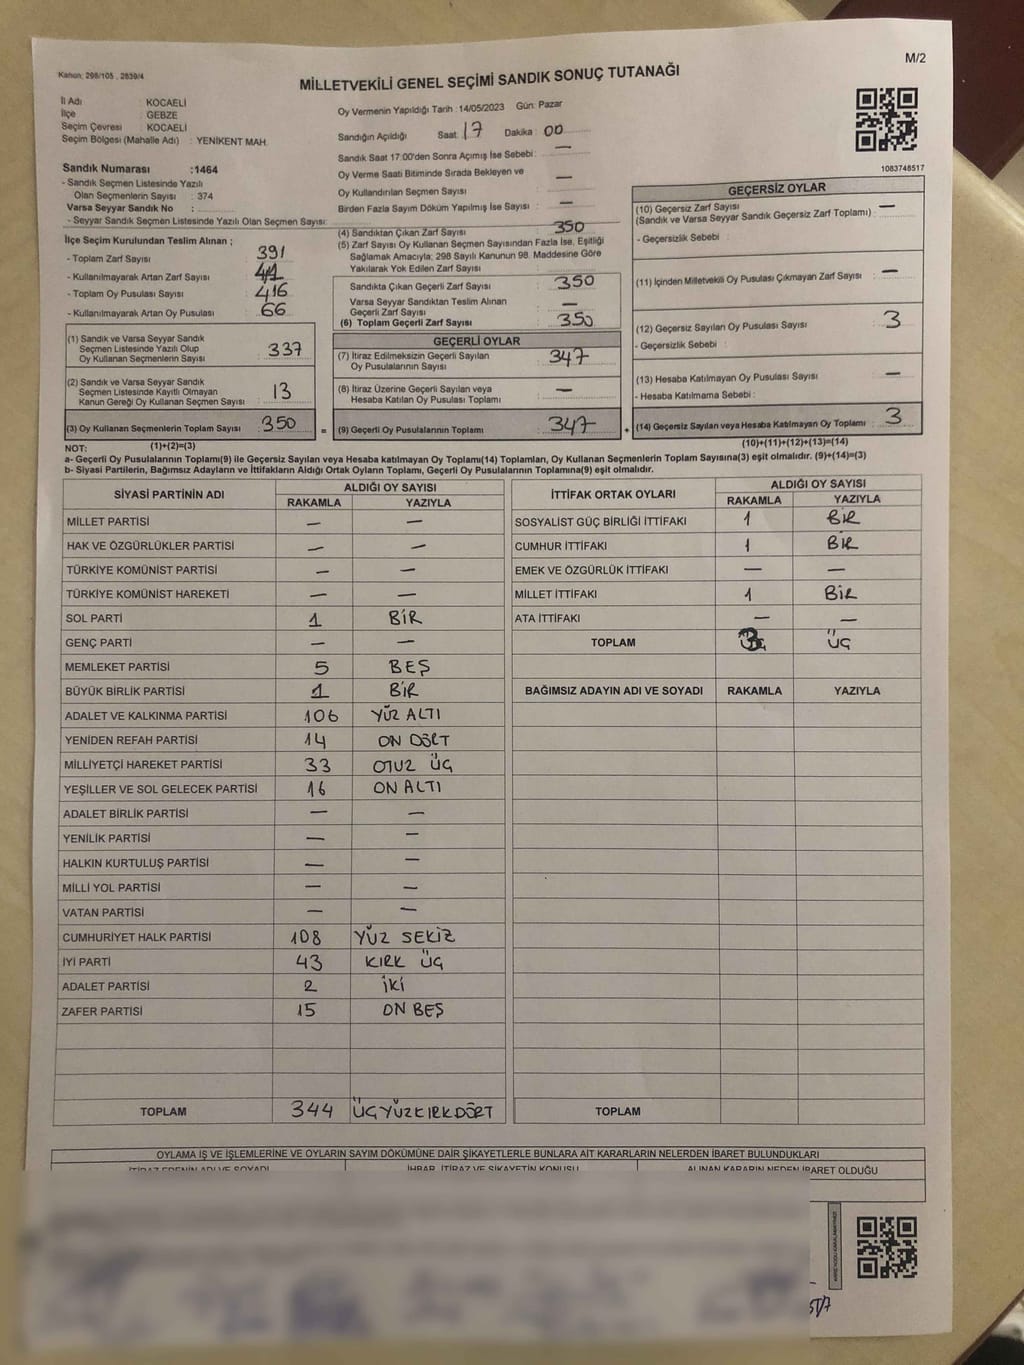 M/2
Kanun: 298/105 , 2839/4
MİLLETVEKİLİ GENEL SEÇİMİ SANDIK SONUÇ TUTANAĞI
İl Adı : KOCAELİ
İlçe : GEBZE
Seçim Çevresi : KOCAELİ
Seçim Bölgesi (Mahalle Adı) : YENİKENT MAH.
Sandık Numarası :1464
- Sandık Seçmen Listesinde Yazılı
Olan Seçmenlerin Sayısı : 374
Varsa Seyyar Sandık No :
- Seyyar Sandık Seçmen Listesinde Yazılı Olan Seçmen Sayısı:
Oy Vermenin Yapıldığı Tarih :14/05/2023 Gün: Pazar
Sandığın Açıldığı Saat: 17 Dakika : 00
Sandık Saat 17:00'den Sonra Açımış İse Sebebi : —
Oy Verme Saati Bitiminde Sırada Bekleyen ve
Oy Kullandırılan Seçmen Sayısı : —
Birden Fazla Sayım Döküm Yapılmış İse Sayısı : —
1083748517
İlçe Seçim Kurulundan Teslim Alınan ;
- Toplam Zarf Sayısı : 391
- Kullanılmayarak Artan Zarf Sayısı : 41
- Toplam Oy Pusulası Sayısı : 416
- Kullanılmayarak Artan Oy Pusulası : 66
(1) Sandık ve Varsa Seyyar Sandık
Seçmen Listesinde Yazılı Olup
Oy Kullanan Seçmenlerin Sayısı : 337
(2) Sandık ve Varsa Seyyar Sandık
Seçmen Listesinde Kayıtlı Olmayan
Kanun Gereği Oy Kullanan Seçmen Sayısı : 13
(3) Oy Kullanan Seçmenlerin Toplam Sayısı : 350
(4) Sandıktan Çıkan Zarf Sayısı : 350
(5) Zarf Sayısı Oy Kullanan Seçmen Sayısından Fazla İse, Eşitliği
Sağlamak Amacıyla; 298 Sayılı Kanunun 98. Maddesine Göre
Yakılarak Yok Edilen Zarf Sayısı :
Sandıkta Çıkan Geçerli Zarf Sayısı : 350
Varsa Seyyar Sandıktan Teslim Alınan
Geçerli Zarf Sayısı : —
(6) Toplam Geçerli Zarf Sayısı : 350
GEÇERLİ OYLAR
(7) İtiraz Edilmeksizin Geçerli Sayılan
Oy Pusulalarının Sayısı : 347
(8) İtiraz Üzerine Geçerli Sayılan veya
Hesaba Katılan Oy Pusulası Toplamı : —
= (9) Geçerli Oy Pusulalarının Toplamı : 347
GEÇERSİZ OYLAR
(10) Geçersiz Zarf Sayısı
(Sandık ve Varsa Seyyar Sandık Geçersiz Zarf Toplamı) : —
- Geçersizlik Sebebi :
(11) İçinden Milletvekili Oy Pusulası Çıkmayan Zarf Sayısı : —
(12) Geçersiz Sayılan Oy Pusulası Sayısı : 3
- Geçersizlik Sebebi :
(13) Hesaba Katılmayan Oy Pusulası Sayısı : —
- Hesaba Katılmama Sebebi :
+ (14) Geçersiz Sayılan veya Hesaba Katılmayan Oy Toplamı : 3
NOT: (1)+(2)=(3) (10)+(11)+(12)+(13)=(14)
a- Geçerli Oy Pusulalarının Toplamı(9) ile Geçersiz Sayılan veya Hesaba katılmayan Oy Toplamı(14) Toplamları, Oy Kullanan Seçmenlerin Toplam Sayısına(3) eşit olmalıdır. (9)+(14)=(3)
b- Siyasi Partilerin, Bağımsız Adayların ve İttifakların Aldığı Ortak Oyların Toplamı, Geçerli Oy Pusulalarının Toplamına(9) eşit olmalıdır.
SİYASİ PARTİNİN ADI ALDIĞI OY SAYISI
RAKAMLA YAZIYLA
MİLLET PARTİSİ — —
HAK VE ÖZGÜRLÜKLER PARTİSİ — —
TÜRKİYE KOMÜNİST PARTİSİ — —
TÜRKİYE KOMÜNİST HAREKETİ — —
SOL PARTİ 1 BİR
GENÇ PARTİ — —
MEMLEKET PARTİSİ 5 BEŞ
BÜYÜK BİRLİK PARTİSİ 1 BİR
ADALET VE KALKINMA PARTİSİ 106 YÜZ ALTI
YENİDEN REFAH PARTİSİ 14 ON DÖRT
MİLLİYETÇİ HAREKET PARTİSİ 33 OTUZ ÜÇ
YEŞİLLER VE SOL GELECEK PARTİSİ 16 ON ALTI
ADALET BİRLİK PARTİSİ — —
YENİLİK PARTİSİ — —
HALKIN KURTULUŞ PARTİSİ — —
MİLLİ YOL PARTİSİ — —
VATAN PARTİSİ — —
CUMHURİYET HALK PARTİSİ 108 YÜZ SEKİZ
İYİ PARTİ 43 KIRK ÜÇ
ADALET PARTİSİ 2 İKİ
ZAFER PARTİSİ 15 ON BEŞ
TOPLAM 344 ÜÇYÜZKIRKDÖRT
İTTİFAK ORTAK OYLARI ALDIĞI OY SAYISI
RAKAMLA YAZIYLA
SOSYALİST GÜÇ BİRLİĞİ İTTİFAKI 1 BİR
CUMHUR İTTİFAKI 1 BİR
EMEK VE ÖZGÜRLÜK İTTİFAKI — —
MİLLET İTTİFAKI 1 BİR
ATA İTTİFAKI — —
TOPLAM 3 ÜÇ
BAĞIMSIZ ADAYIN ADI VE SOYADI RAKAMLA YAZIYLA
TOPLAM
OYLAMA İŞ VE İŞLEMLERİNE VE OYLARIN SAYIM DÖKÜMÜNE DAİR ŞİKAYETLERLE BUNLARA AİT KARARLARIN NELERDEN İBARET BULUNDUKLARI
İTİRAZ EDENİN ADI VE SOYADI İHBAR, İTİRAZ VE ŞİKAYETİN KONUSU ALINAN KARARIN NEDEN İBARET OLDUĞU